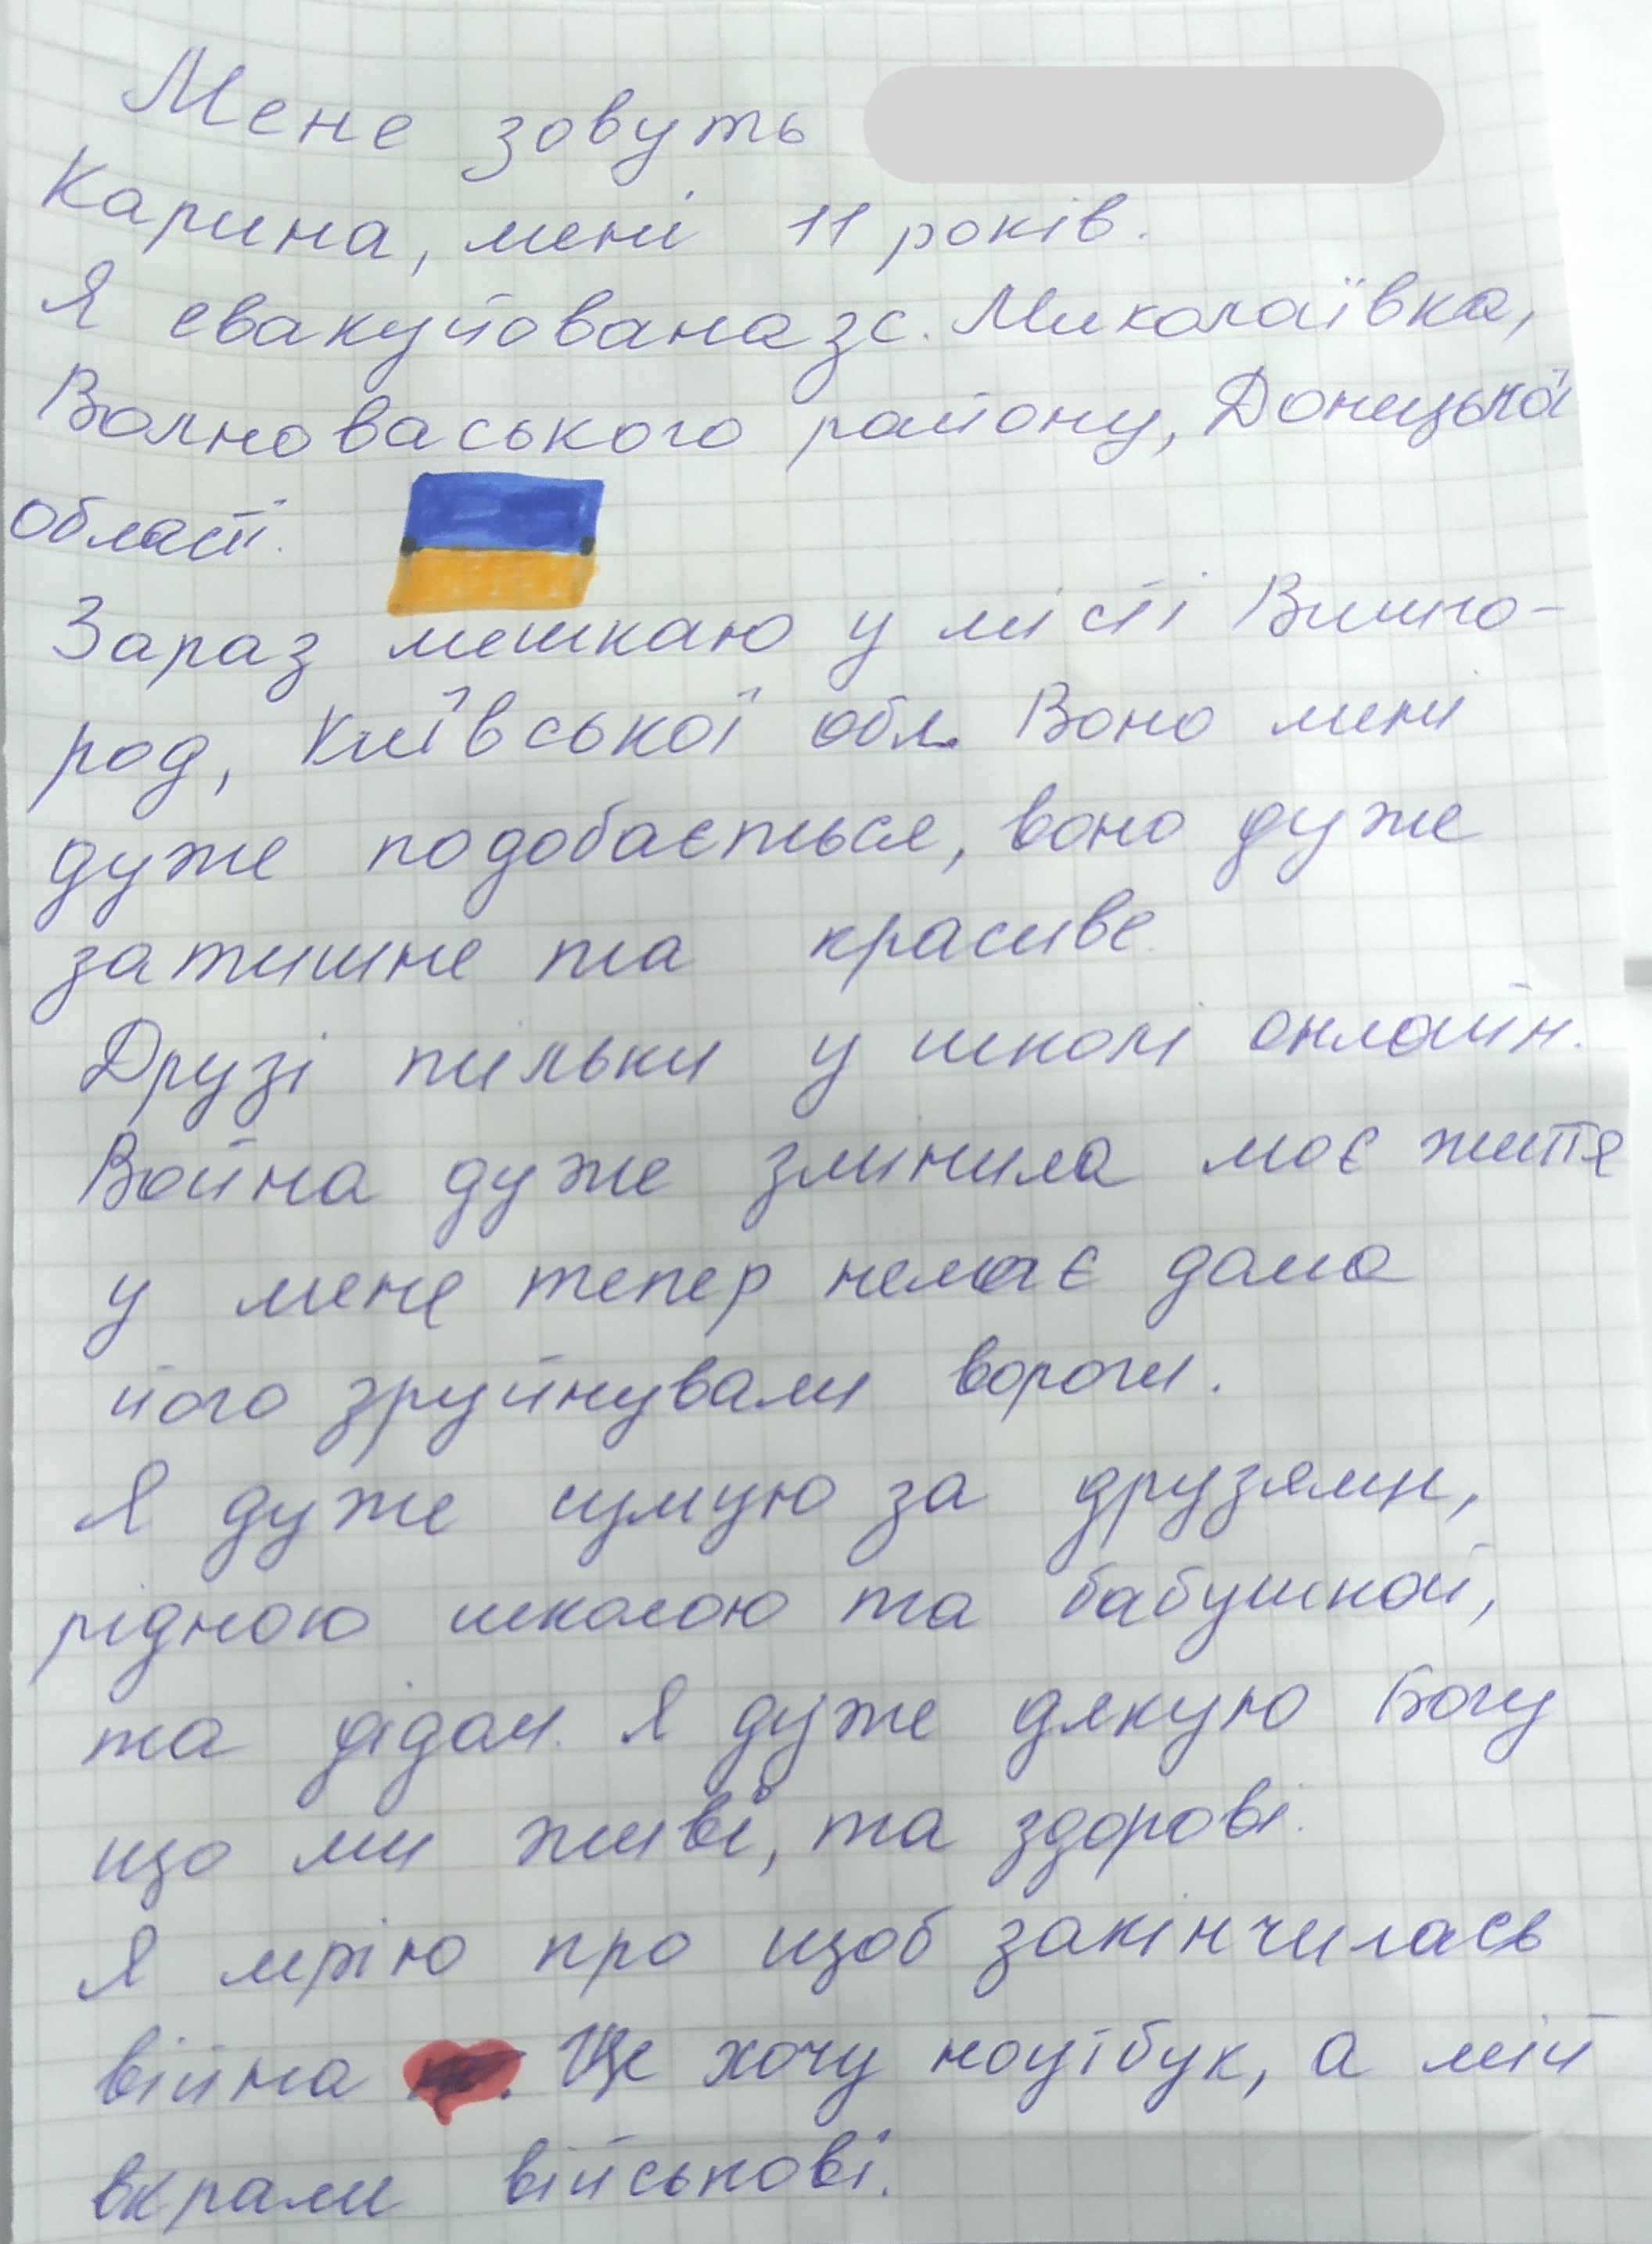 Мене зовуть
Карина, мені 11 років.
Я евакуйована з с. Миколаївка,
Волноваського району, Донецької
області.
Зараз мешкаю у місті Вишго-
род, Київської обл. Воно мені
дуже подобається, воно дуже
затишне та красиве.
Друзі тільки у школі онлайн.
Война дуже змінила моє життя
у мене тепер немає дома
його зруйнували вороги.
Я дуже сумую за друзями,
рідною школою та бабушкой,
та дідом. Я дуже дякую Богу
що ми живі, та здорові.
Я мрію про щоб закінчилась
війна Ще хочу ноутбук, а мій
вкрали військові.